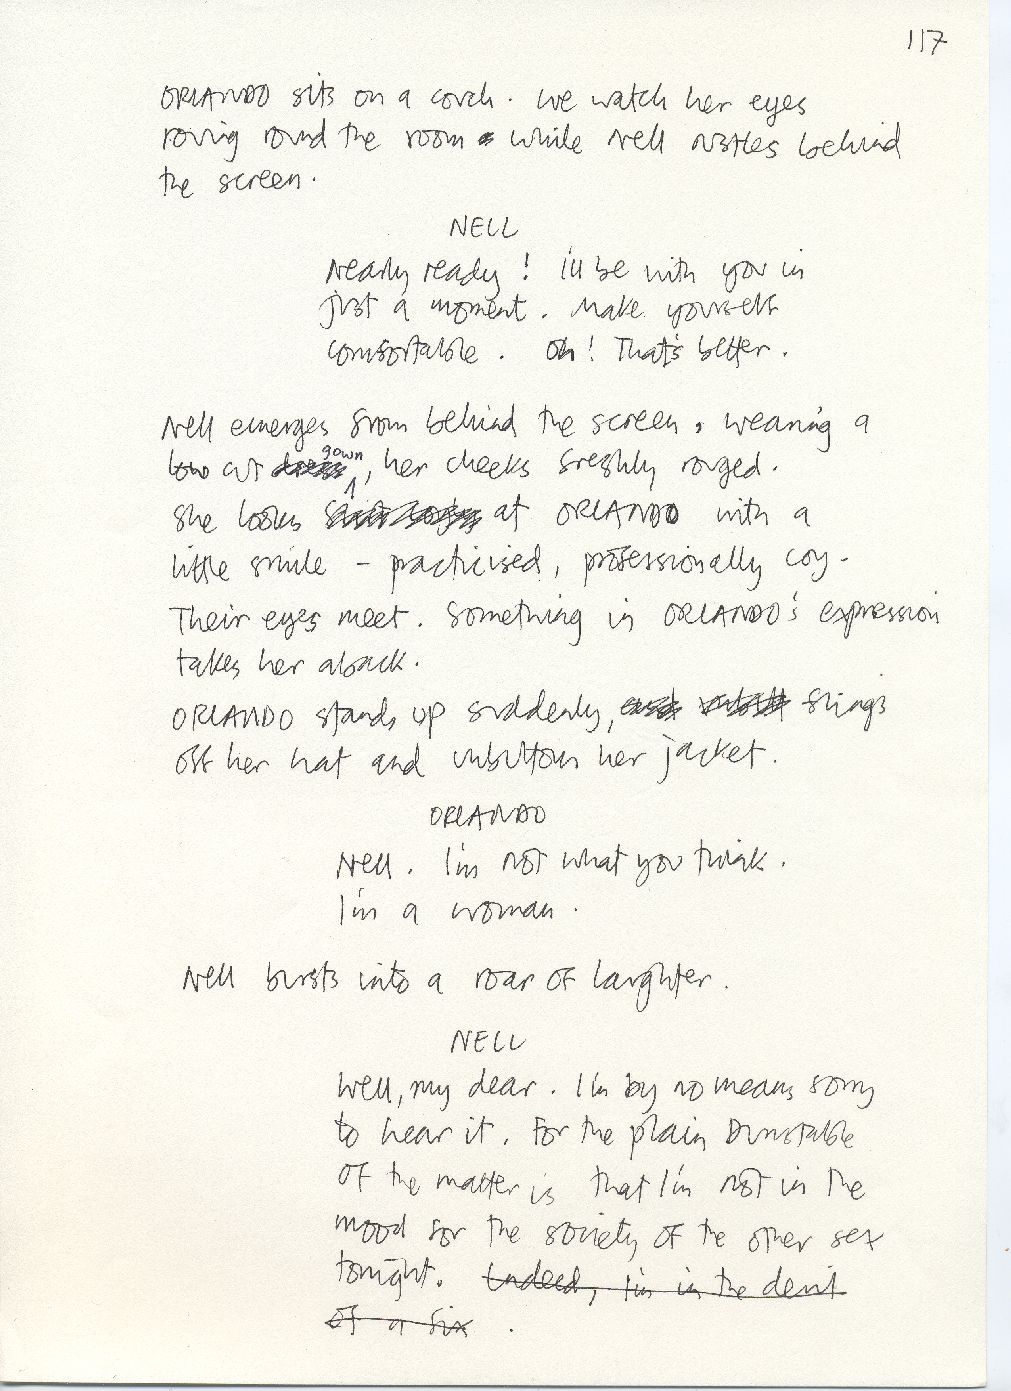 117
ORLANDO sits on a couch. We watch her eyes
roving round the room while Nell rustles behind
the screen.
NELL
Nearly ready! I'll be with you in
just a moment. Make yourself
comfortable. Oh! That's better.
Nell emerges from behind the screen, wearing a
gown
low cut dress, her cheeks freshly rouged.
She looks at ORLANDO with a
little smile - practicised, professionally coy.
Their eyes meet. Something in ORLANDO's expression
takes her aback.
ORLANDO stands up suddenly, and flings
off her hat and unbuttons her jacket.
ORLANDO
Nell. I'm not what you think.
I'm a woman.
Nell bursts into a roar of laughter.
NELL
Well, my dear. I'm by no means sorry
to hear it. For the plain Dunstable
of the matter is that I'm not in the
mood for the society of the other sex
tonight. Indeed, I'm in the devil
of a fix.